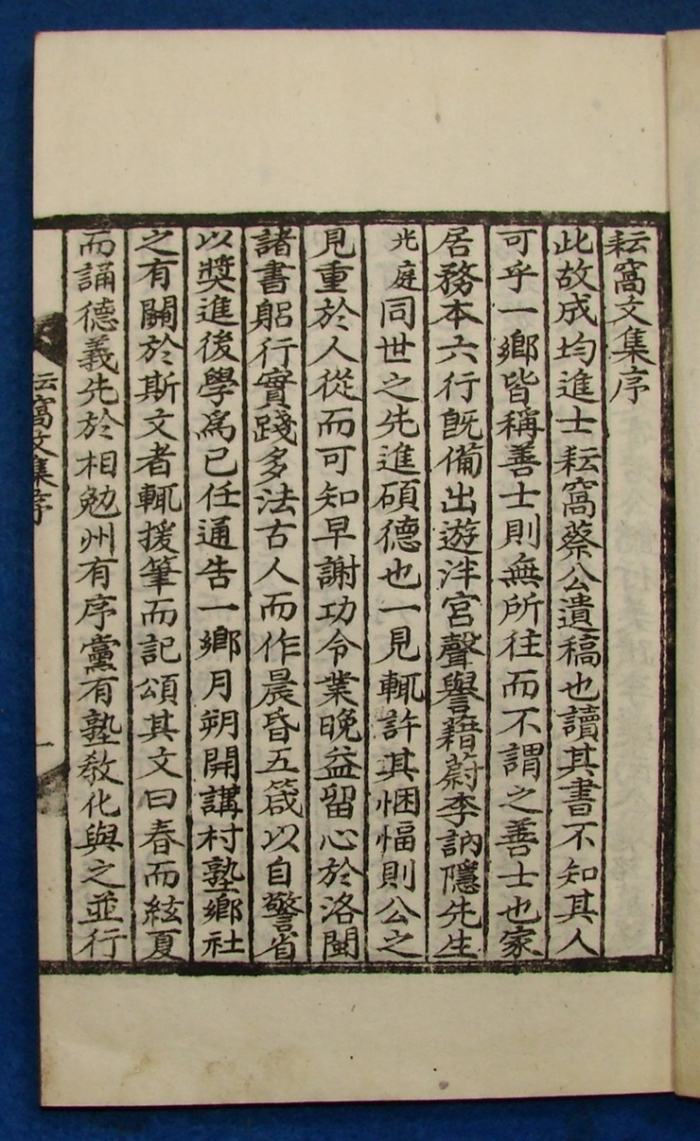 耘窩文集序
此故成均進士耘窩蔡公遺稿也讀其書不知其人
可乎一鄉皆稱善士則無所往而不謂之善士也家
居務本六行旣備出遊泮宮聲譽藉蔚李訥隱先生
光庭同世之先進碩德也一見輒許其悃愊則公之
見重於人從而可知早謝功令業晚益留心於洛閩
諸書躬行實踐多法古人而作晨昏五箴以自警省
以獎進後學爲已任通告一鄉月朔開講村塾鄉社
之有關於斯文者輒援筆而記頌其文曰春而絃夏
而誦德義先於相勉州有序黨有塾敎化與之並行
耘窩文集序
一